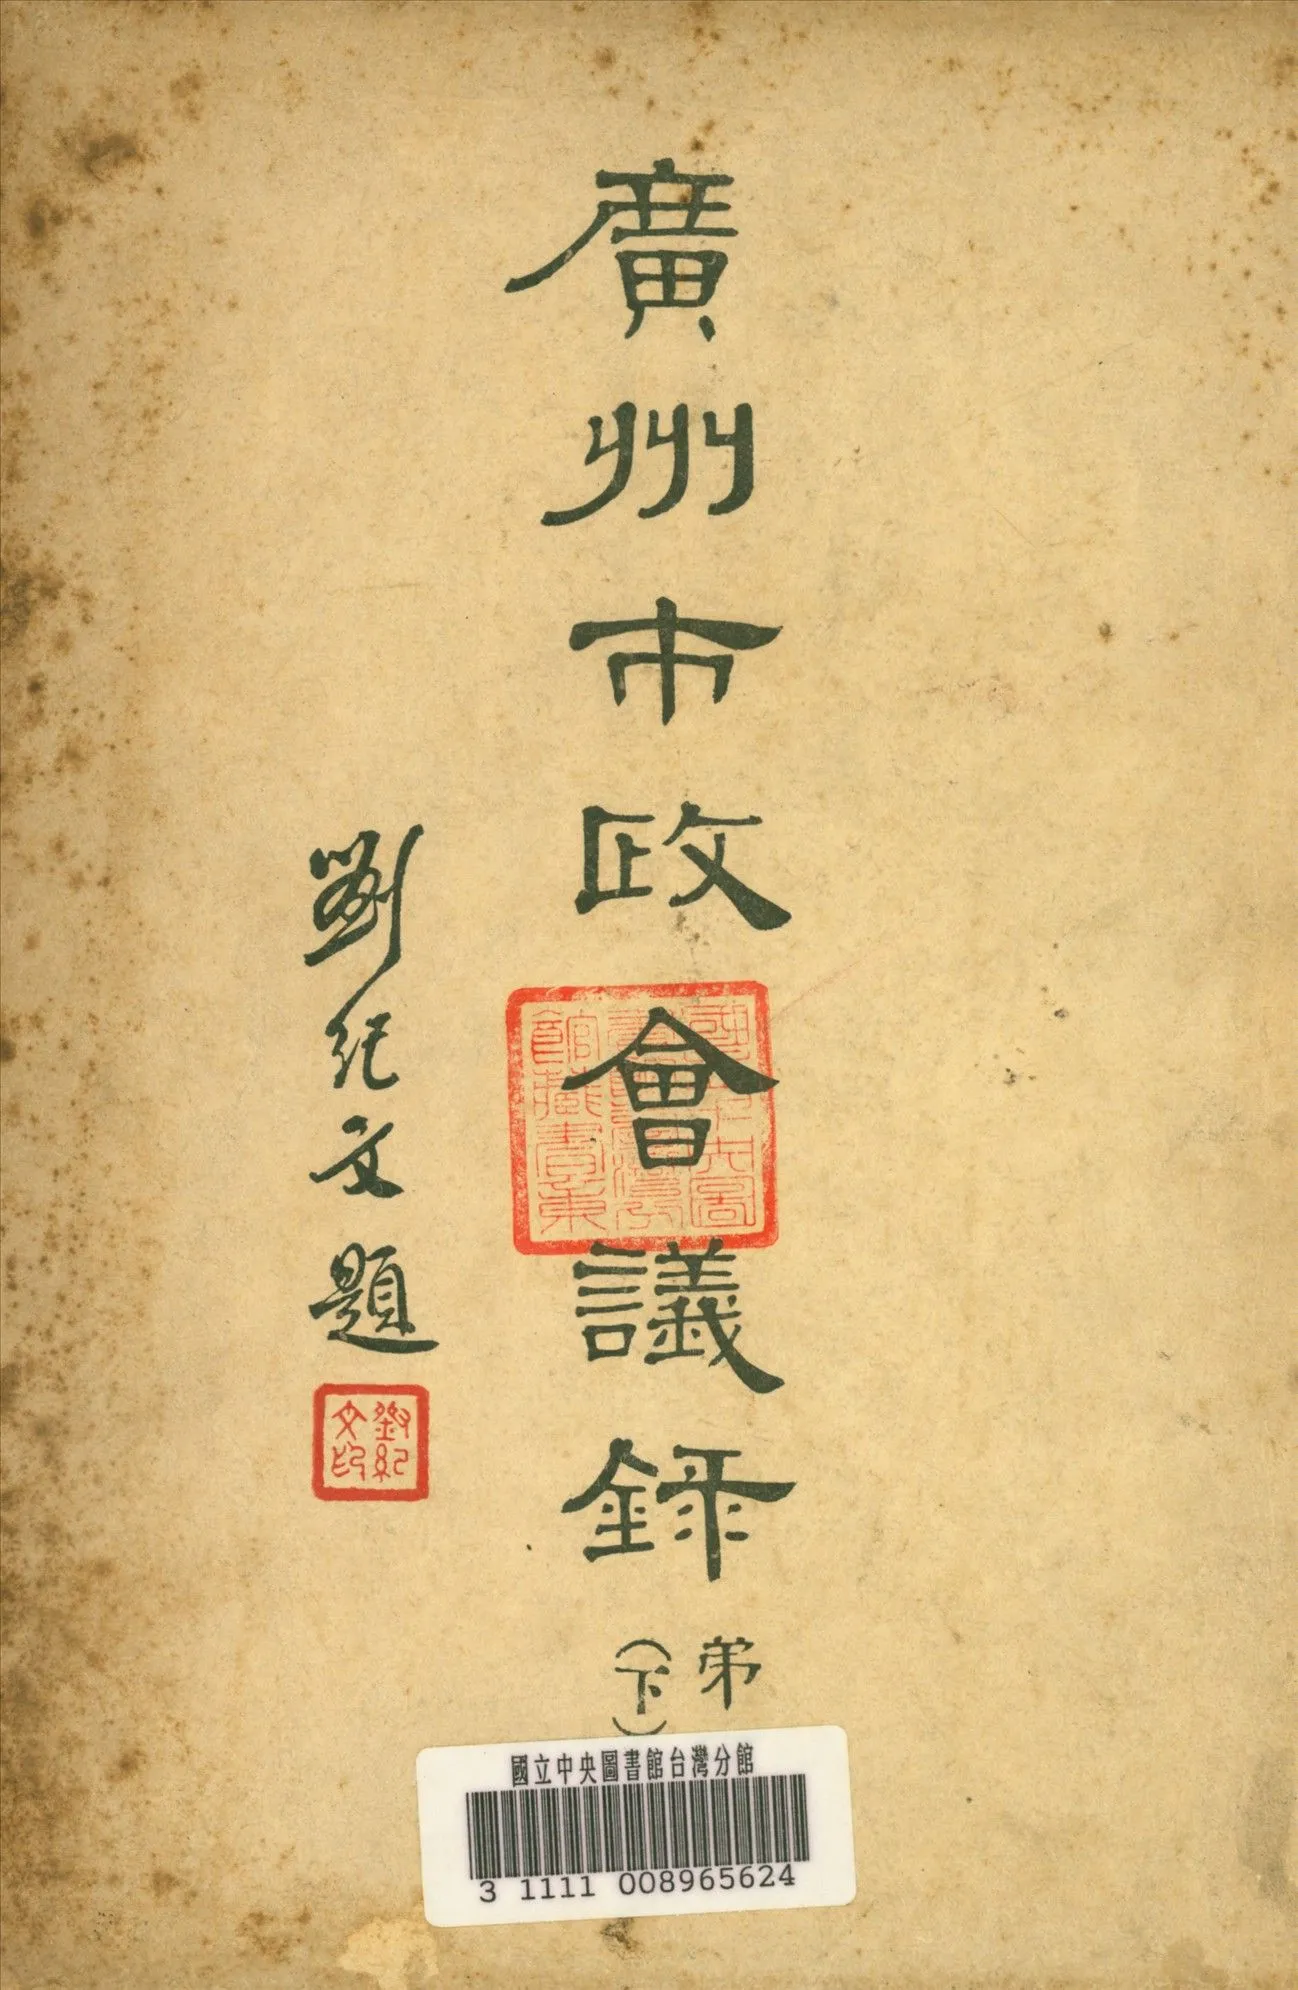 廣州市政會議錄
弟
(下)
劉紀文題
劉紀文印
國立中央圖書館台灣分館藏書章
國立中央圖書館台灣分館
3 1111 008965624